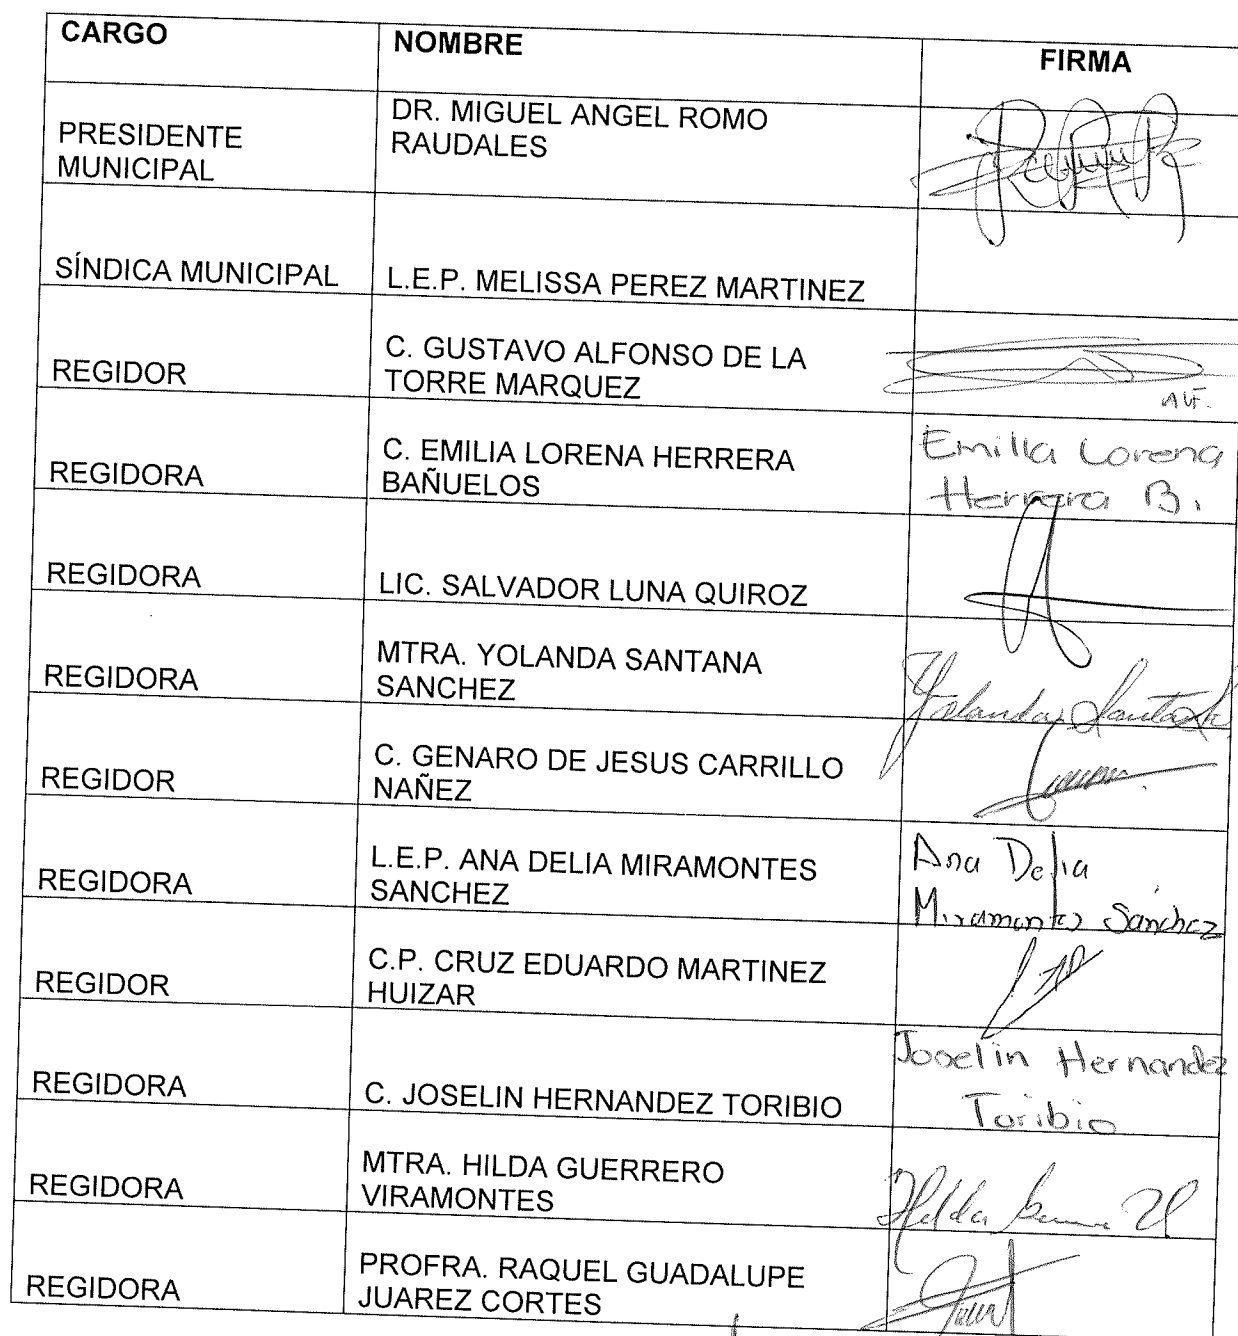 CARGO
NOMBRE
FIRMA
PRESIDENTE
MUNICIPAL
DR. MIGUEL ANGEL ROMO
RAUDALES
SÍNDICA MUNICIPAL
L.E.P. MELISSA PEREZ MARTINEZ
REGIDOR
C. GUSTAVO ALFONSO DE LA
TORRE MARQUEZ
REGIDORA
C. EMILIA LORENA HERRERA
BAÑUELOS
Emilia Lorena
Herrera B.
REGIDORA
LIC. SALVADOR LUNA QUIROZ
REGIDORA
MTRA. YOLANDA SANTANA
SANCHEZ
Yolanda
REGIDOR
C. GENARO DE JESUS CARRILLO
NAÑEZ
REGIDORA
L.E.P. ANA DELIA MIRAMONTES
SANCHEZ
Ana Delia
Miramontes Sanchez
REGIDOR
C.P. CRUZ EDUARDO MARTINEZ
HUIZAR
REGIDORA
C. JOSELIN HERNANDEZ TORIBIO
Joselin Hernandez
Toribio
REGIDORA
MTRA. HILDA GUERRERO
VIRAMONTES
Hilda
REGIDORA
PROFRA. RAQUEL GUADALUPE
JUAREZ CORTES